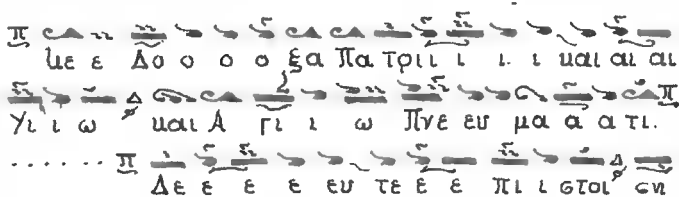 με ε Δο ο ο ο ξα Πα τρι ι ι ι ι και αι αι
Υι ι ω και Α γι ι ω Πνε ευ μα α α τι.
...... Δε ε ε ε ευ τε ε ε πι ι στοι ση